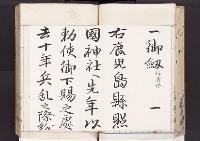 一御劔 一
右鹿児島縣照
國神社ヘ先年以
勅使御下賜之處
去十年兵乱之際